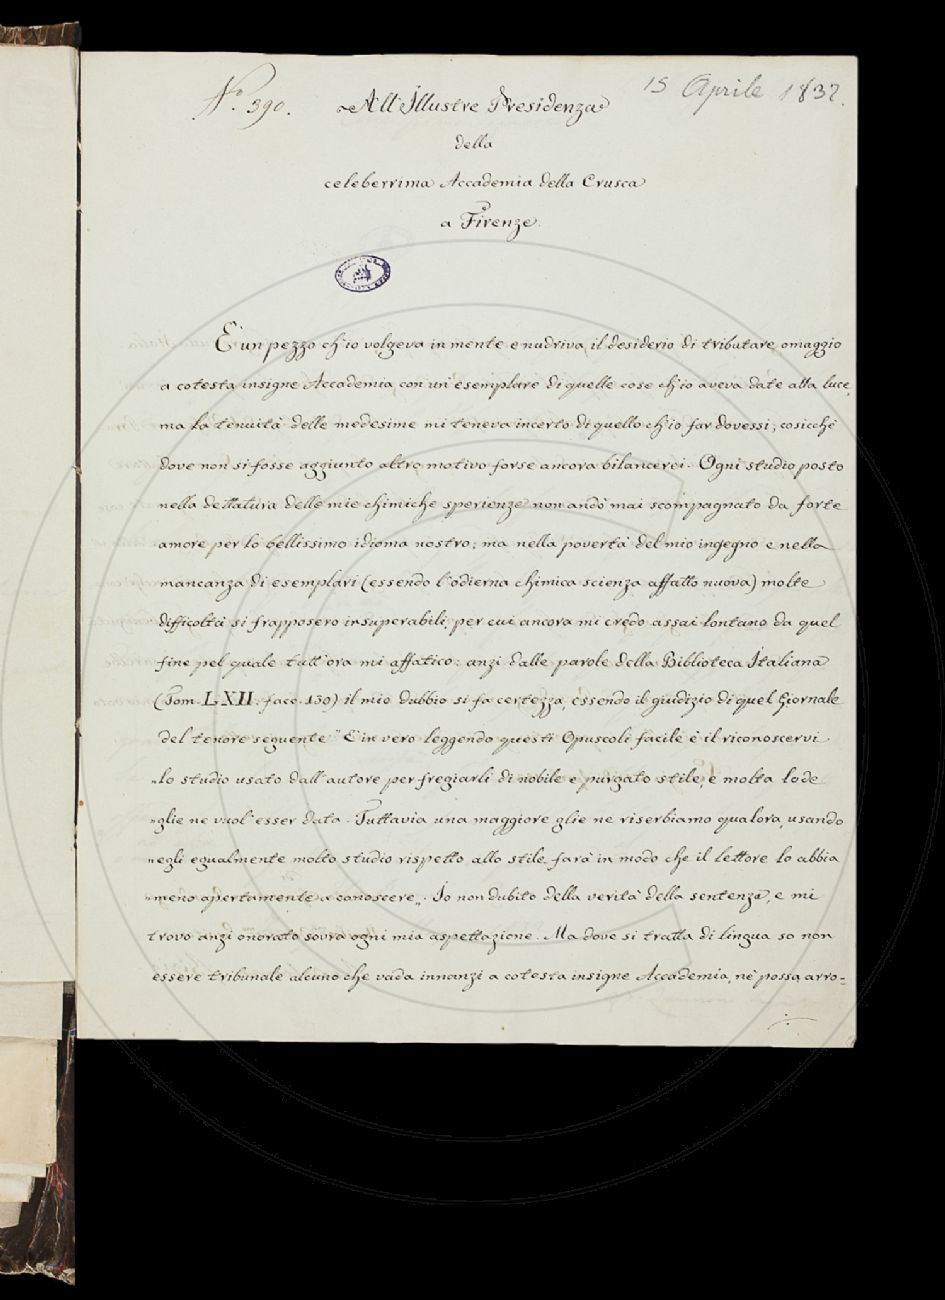 N.° 390.
15 Aprile 1832.
All'Illustre Presidenza
della
celeberrima Accademia della Crusca
a Firenze.
E' un pezzo ch'io volgeva in mente e nudriva il desiderio di tributare omaggio
a cotesta insigne Accademia con un'esemplare di quelle cose ch'io aveva date alla luce,
ma la tenuità delle medesime mi teneva incerto di quello ch'io far dovessi; cosicchè
dove non si fosse aggiunto altro motivo forse ancora bilancerei. Ogni studio posto
nella dettatura delle mie chimiche sperienze non andò mai scompagnato da forte
amore per lo bellissimo idioma nostro; ma nella povertà del mio ingegno e nella
mancanza di esemplari (essendo l'odierna chimica scienza affatto nuova) molte
difficoltà si frapposero insuperabili, per cui ancora mi credo assai lontano da quel
fine pel quale tutt'ora mi affatico: anzi dalle parole della Biblioteca Italiana
(Tom. LXII. facc. 130) il mio dubbio si fa certezza, essendo il giudizio di quel Giornale
del tenore seguente "E in vero leggendo questi Opuscoli facile è il riconoscervi
"lo studio usato dall'autore per fregiarli di nobile e purgato stile, e molta lode
"glie ne vuol'esser data. Tuttavia una maggiore glie ne riserbiamo qualora, usando
"egli egualmente molto studio rispetto allo stile farà in modo che il lettore lo abbia
"meno apertamente a conoscere„. Io non dubito della verità della sentenza, e mi
trovo anzi onorato sovra ogni mia aspettazione. Ma dove si tratta di lingua so non
essere tribunale alcuno che vada innanzi a cotesta insigne Accademia, nè possa arro=